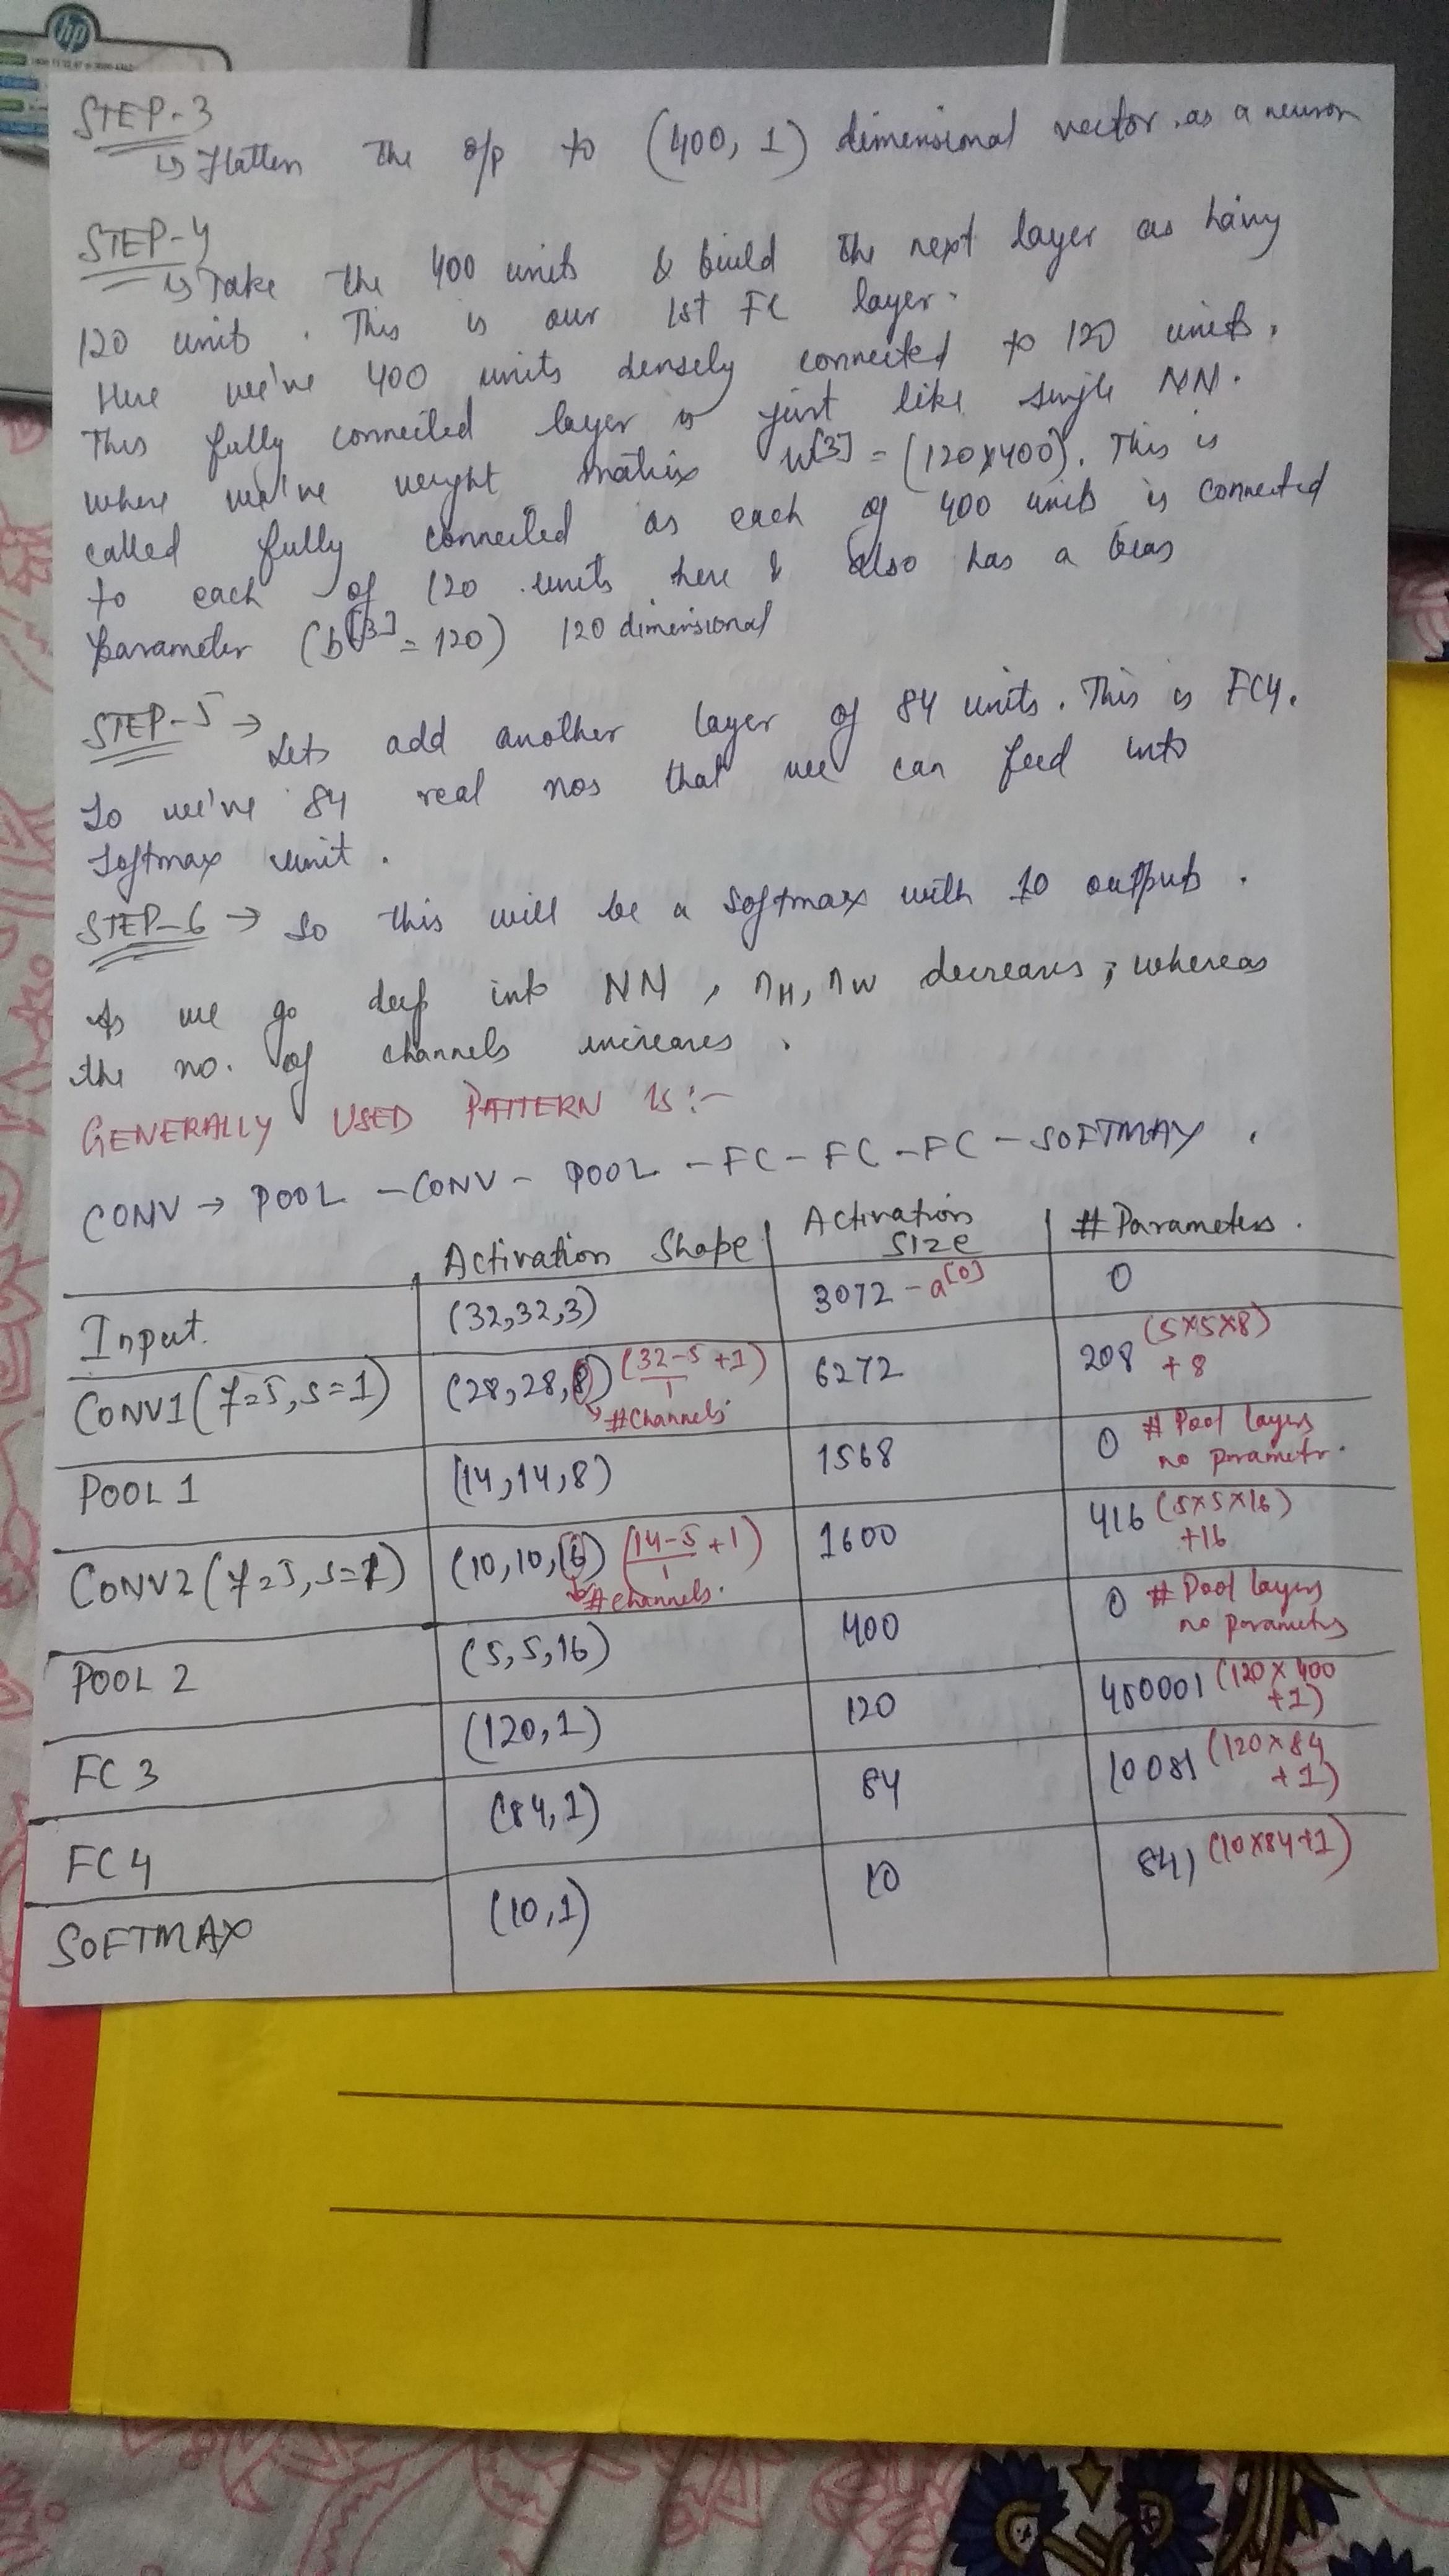 hp
STEP-3
↳ Flatten the o/p to (400, 1) dimensional vector as a neuron
STEP-4
↳ Take the 400 units & build the next layer as having
120 units. This is our 1st FC layer.
Here we've 400 units densely connected to 120 units.
This fully connected layer is just like single NN.
where we've weight matrix W[3] = (120x400). This is
called fully connected as each of 400 units is connected
to each of 120 units here & also has a bias
parameter (b[3] = 120) 120 dimensional
STEP-5 → Lets add another layer of 84 units. This is FC4.
So we've 84 real nos that we can feed into
Softmax unit.
STEP-6 → So this will be a softmax with 10 outputs.
As we go deep into NN, nH, nW decreases; whereas
the no. of channels increases.
GENERALLY USED PATTERN IS:-
CONV → POOL - CONV - POOL - FC - FC - FC - SOFTMAX.
Activation Shape Activation Size # Parameters.
Input. (32,32,3) 3072 - a[0] 0
CONV1 (f=5, s=1) (28,28,8) (32-5/1 +1) 6272 208 (5x5x8) + 8
→ #Channels
POOL 1 (14,14,8) 1568 0 # Pool layers no parametr.
CONV2 (f=5, s=1) (10,10,16) (14-5/1 +1) 1600 416 (5x5x16) +16
→ #Channels.
POOL 2 (5,5,16) 400 0 # Pool layers no parametrs
FC 3 (120,1) 120 480001 (120 x 400 +1)
FC 4 (84,1) 84 10081 (120x84 +1)
SOFTMAX (10,1) 10 841 (10x84+1)